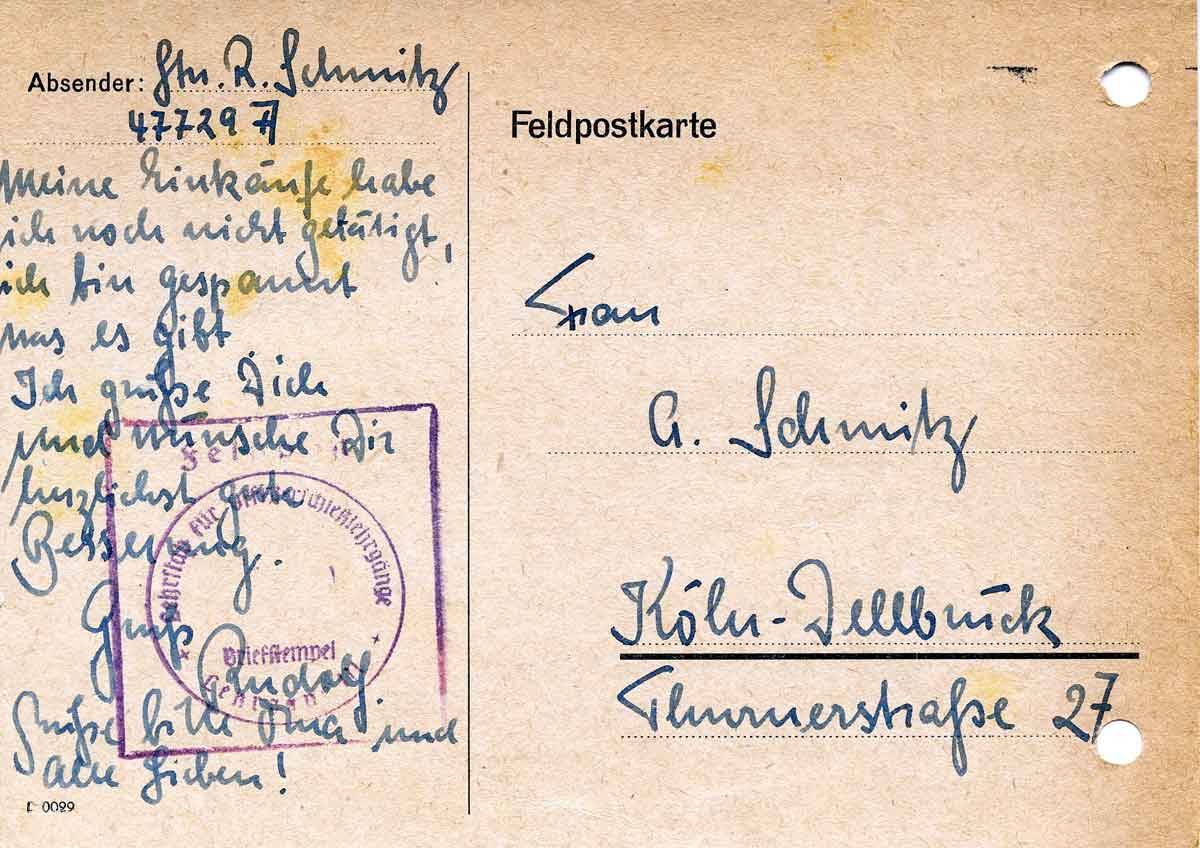 Absender: Gtn. R. Schmitz
47729 A
Meine Einkäufe habe
ich noch nicht getätigt,
ich bin gespannt
was es gibt
Ich grüße Dich
und wünsche Dir
herzlichst gute
Besserung.
Gruß
Rudolf
Grüße bitte Oma und
alle Lieben!
L 0029
Lehrstab für Offizierschießlehrgänge
Briefstempel
Feldpostkarte
Frau
A. Schmitz
Köln-Dellbrück
Thurnerstraße 27